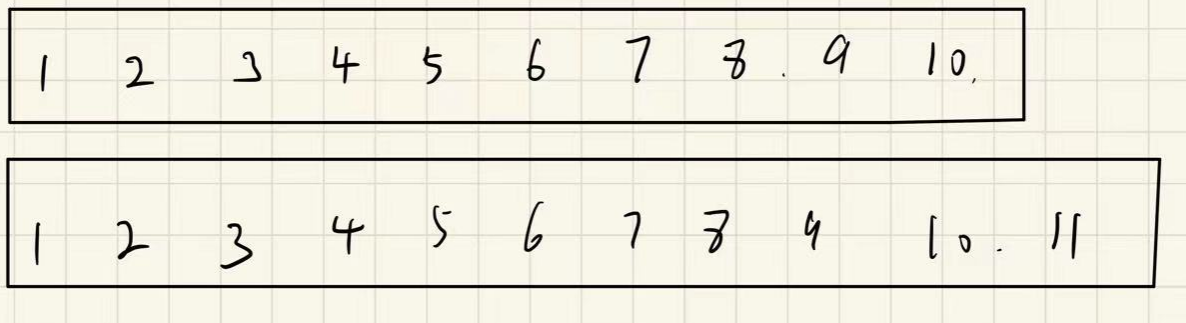 1 2 3 4 5 6 7 8 . 9 10.
1 2 3 4 5 6 7 8 9 10. 11